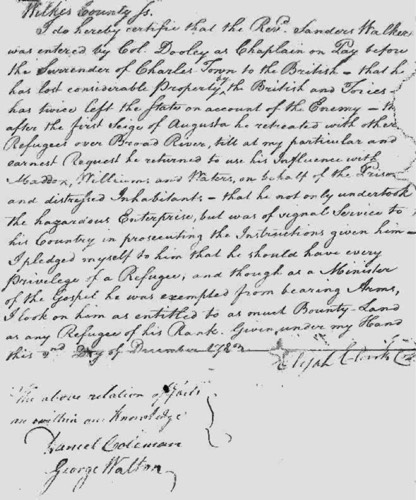 Wilkes County Ss.
I do hereby certify that the Revd. Sanders Walker
was entered by Col. Dooley as Chaplain on Pay before
the Surrender of Charles Town to the British – that he
has lost considerable Property by the British and Tories –
has twice left the State on account of the Enemy –
after the first Seige of Augusta he retreated with other
Refugees over Broad River, till at my particular and
earnest Request he returned to use his Influence with
Maddox, Williams, and Waters, on behalf of the
and distressed Inhabitants – that he not only undertook
the hazardous Enterprise, but was of signal Service to
his Country in prosecuting the Instructions given him –
I pledged myself to him that he should have every
Privilege of a Refugee, and though as a Minister
of the Gospel he was exempted from bearing Arms,
I look on him as entitled to as much Bounty Land
as any Refugee of his Rank. Given under my Hand
this 2nd Day of December
Elijah Clark Col.
The above relation of facts
are within our Knowledge
Daniel Coleman
George Walton